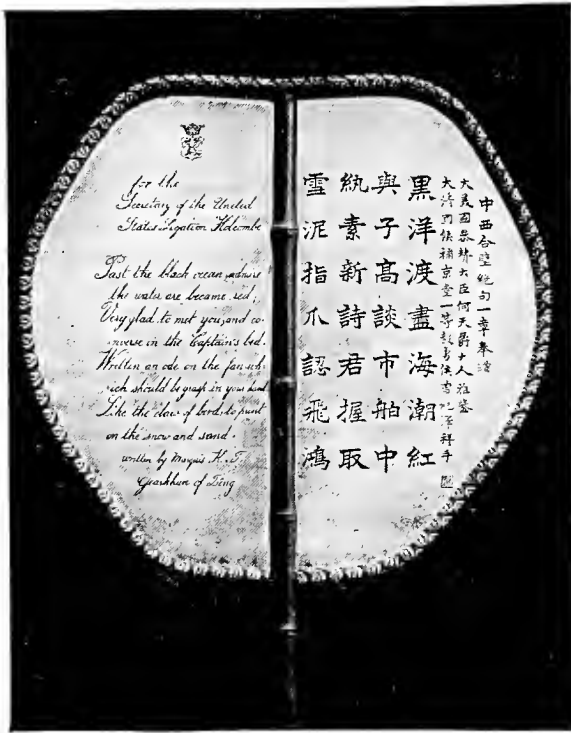 for the
Secretary of the United
States Legation Holcombe
Past the black ocean, admire
the water are became red;
Very glad to met you, and co-
nverse in the Captain's bed.
Written an ode on the fan wh-
ich should be grasp in your hand
Like the claw of bird, to print
on the snow and sand.
written by Marquis K. T.
of Tseng
中西合璧絕句一章奉
大美國參贊大臣何天爵大人雅鑒
大清國侯補京堂一等毅勇侯曾紀澤手
黑洋渡盡海潮紅
與子高談市舶中
紈素新詩君握取
雪泥指爪認飛鴻